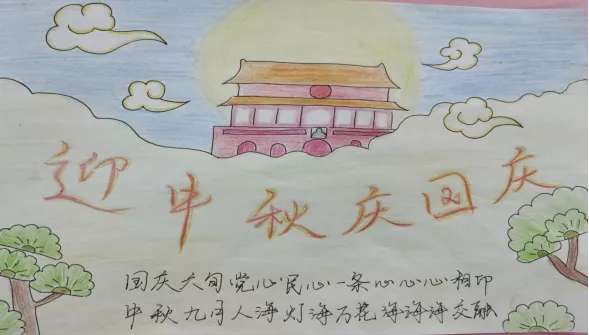 迎中秋庆国庆
国庆大旬党心民心一条心心心相印
中秋九月人海灯海万花海海海交融